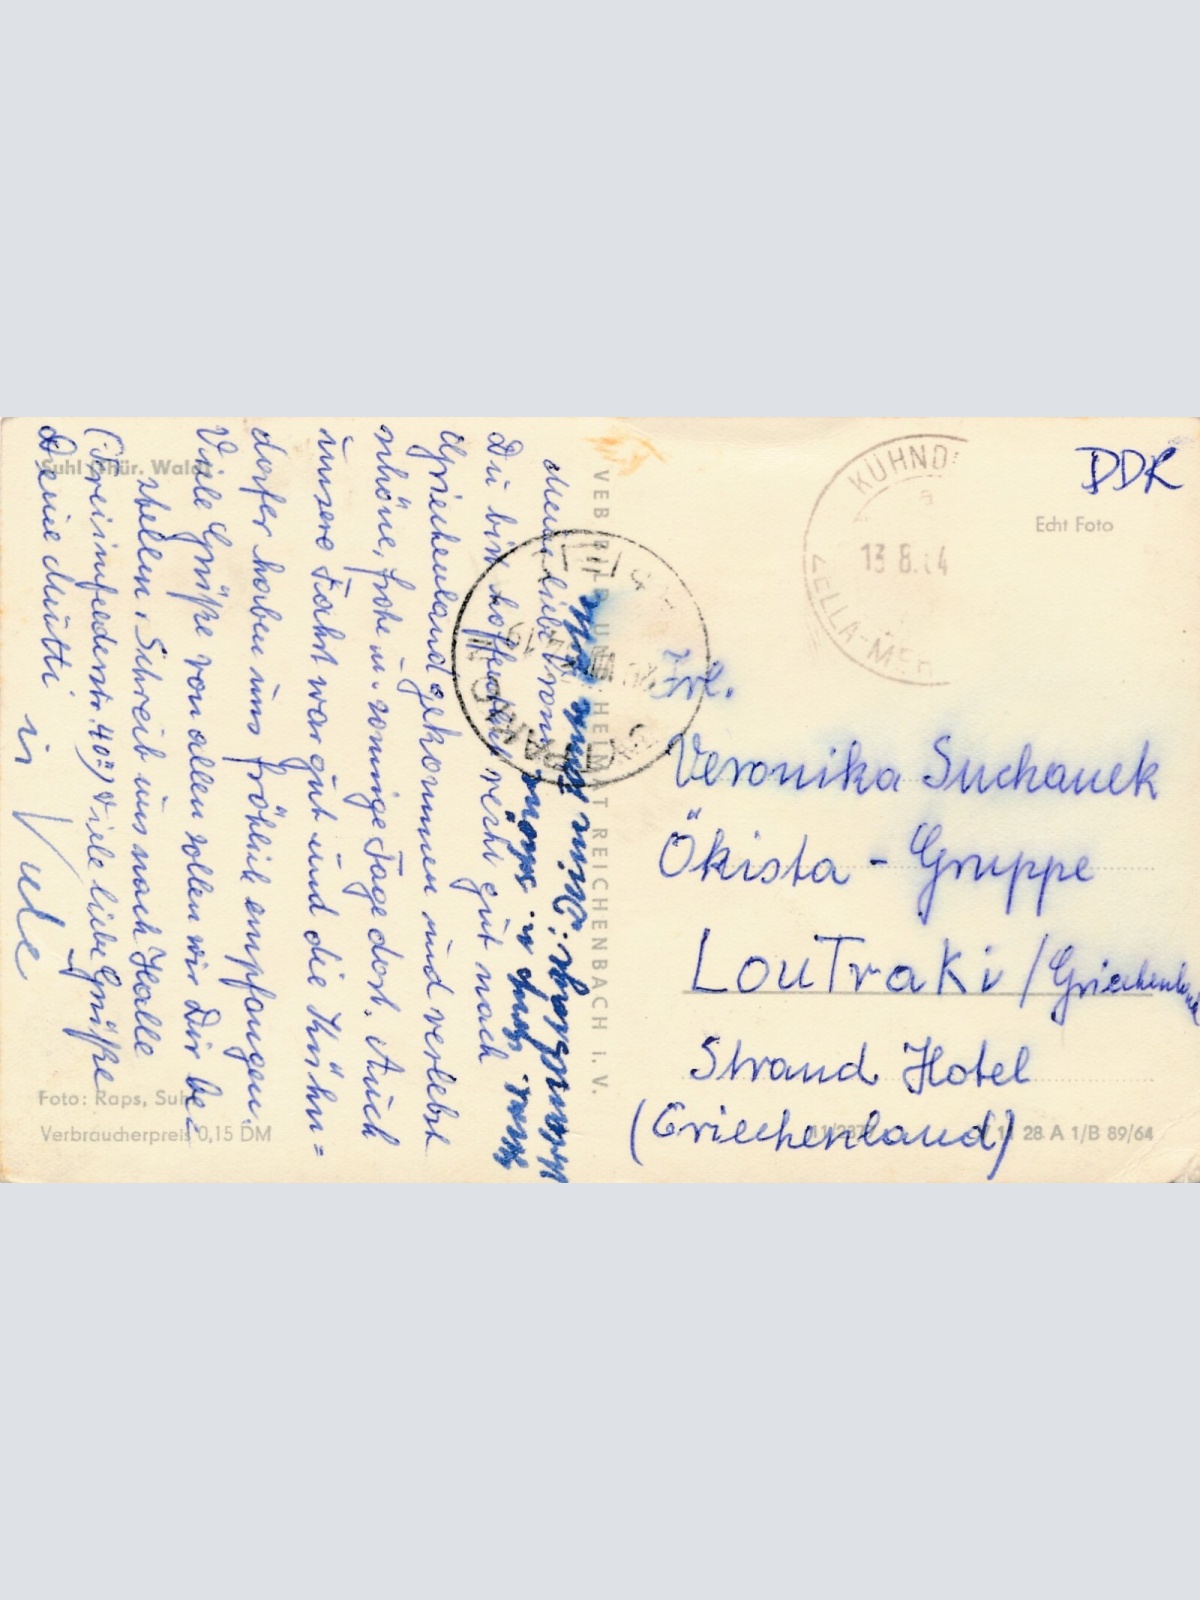 Meine liebe Vroni!
Du bist hoffentlich recht gut nach
Griechenland gekommen und verlebst
schöne, frohe u. sonnige Tage dort. Auch
unsere Fahrt war gut und die Kühn=
dorfer haben uns fröhlich empfangen.
Viele Grüße von allen sollen wir Dir be=
stellen. Schreib uns nach Halle
(Freiimfelderstr. 40a) Viele liebe Grüße
Deine Mutti
u. Vule
DDR
Echt Foto
KÜHND
a
13.8.64
ZELLA-MEH
Frl.
Veronika Suchanek
Ökista - Gruppe
LouTraKi / Griechenland
Strand Hotel
(Griechenland)
28 A 1/B 89/64
VEB BILD UND HEIMAT REICHENBACH i. V.
Suhl (Thür. Wald)
Foto: Raps, Suhl
Verbraucherpreis 0,15 DM